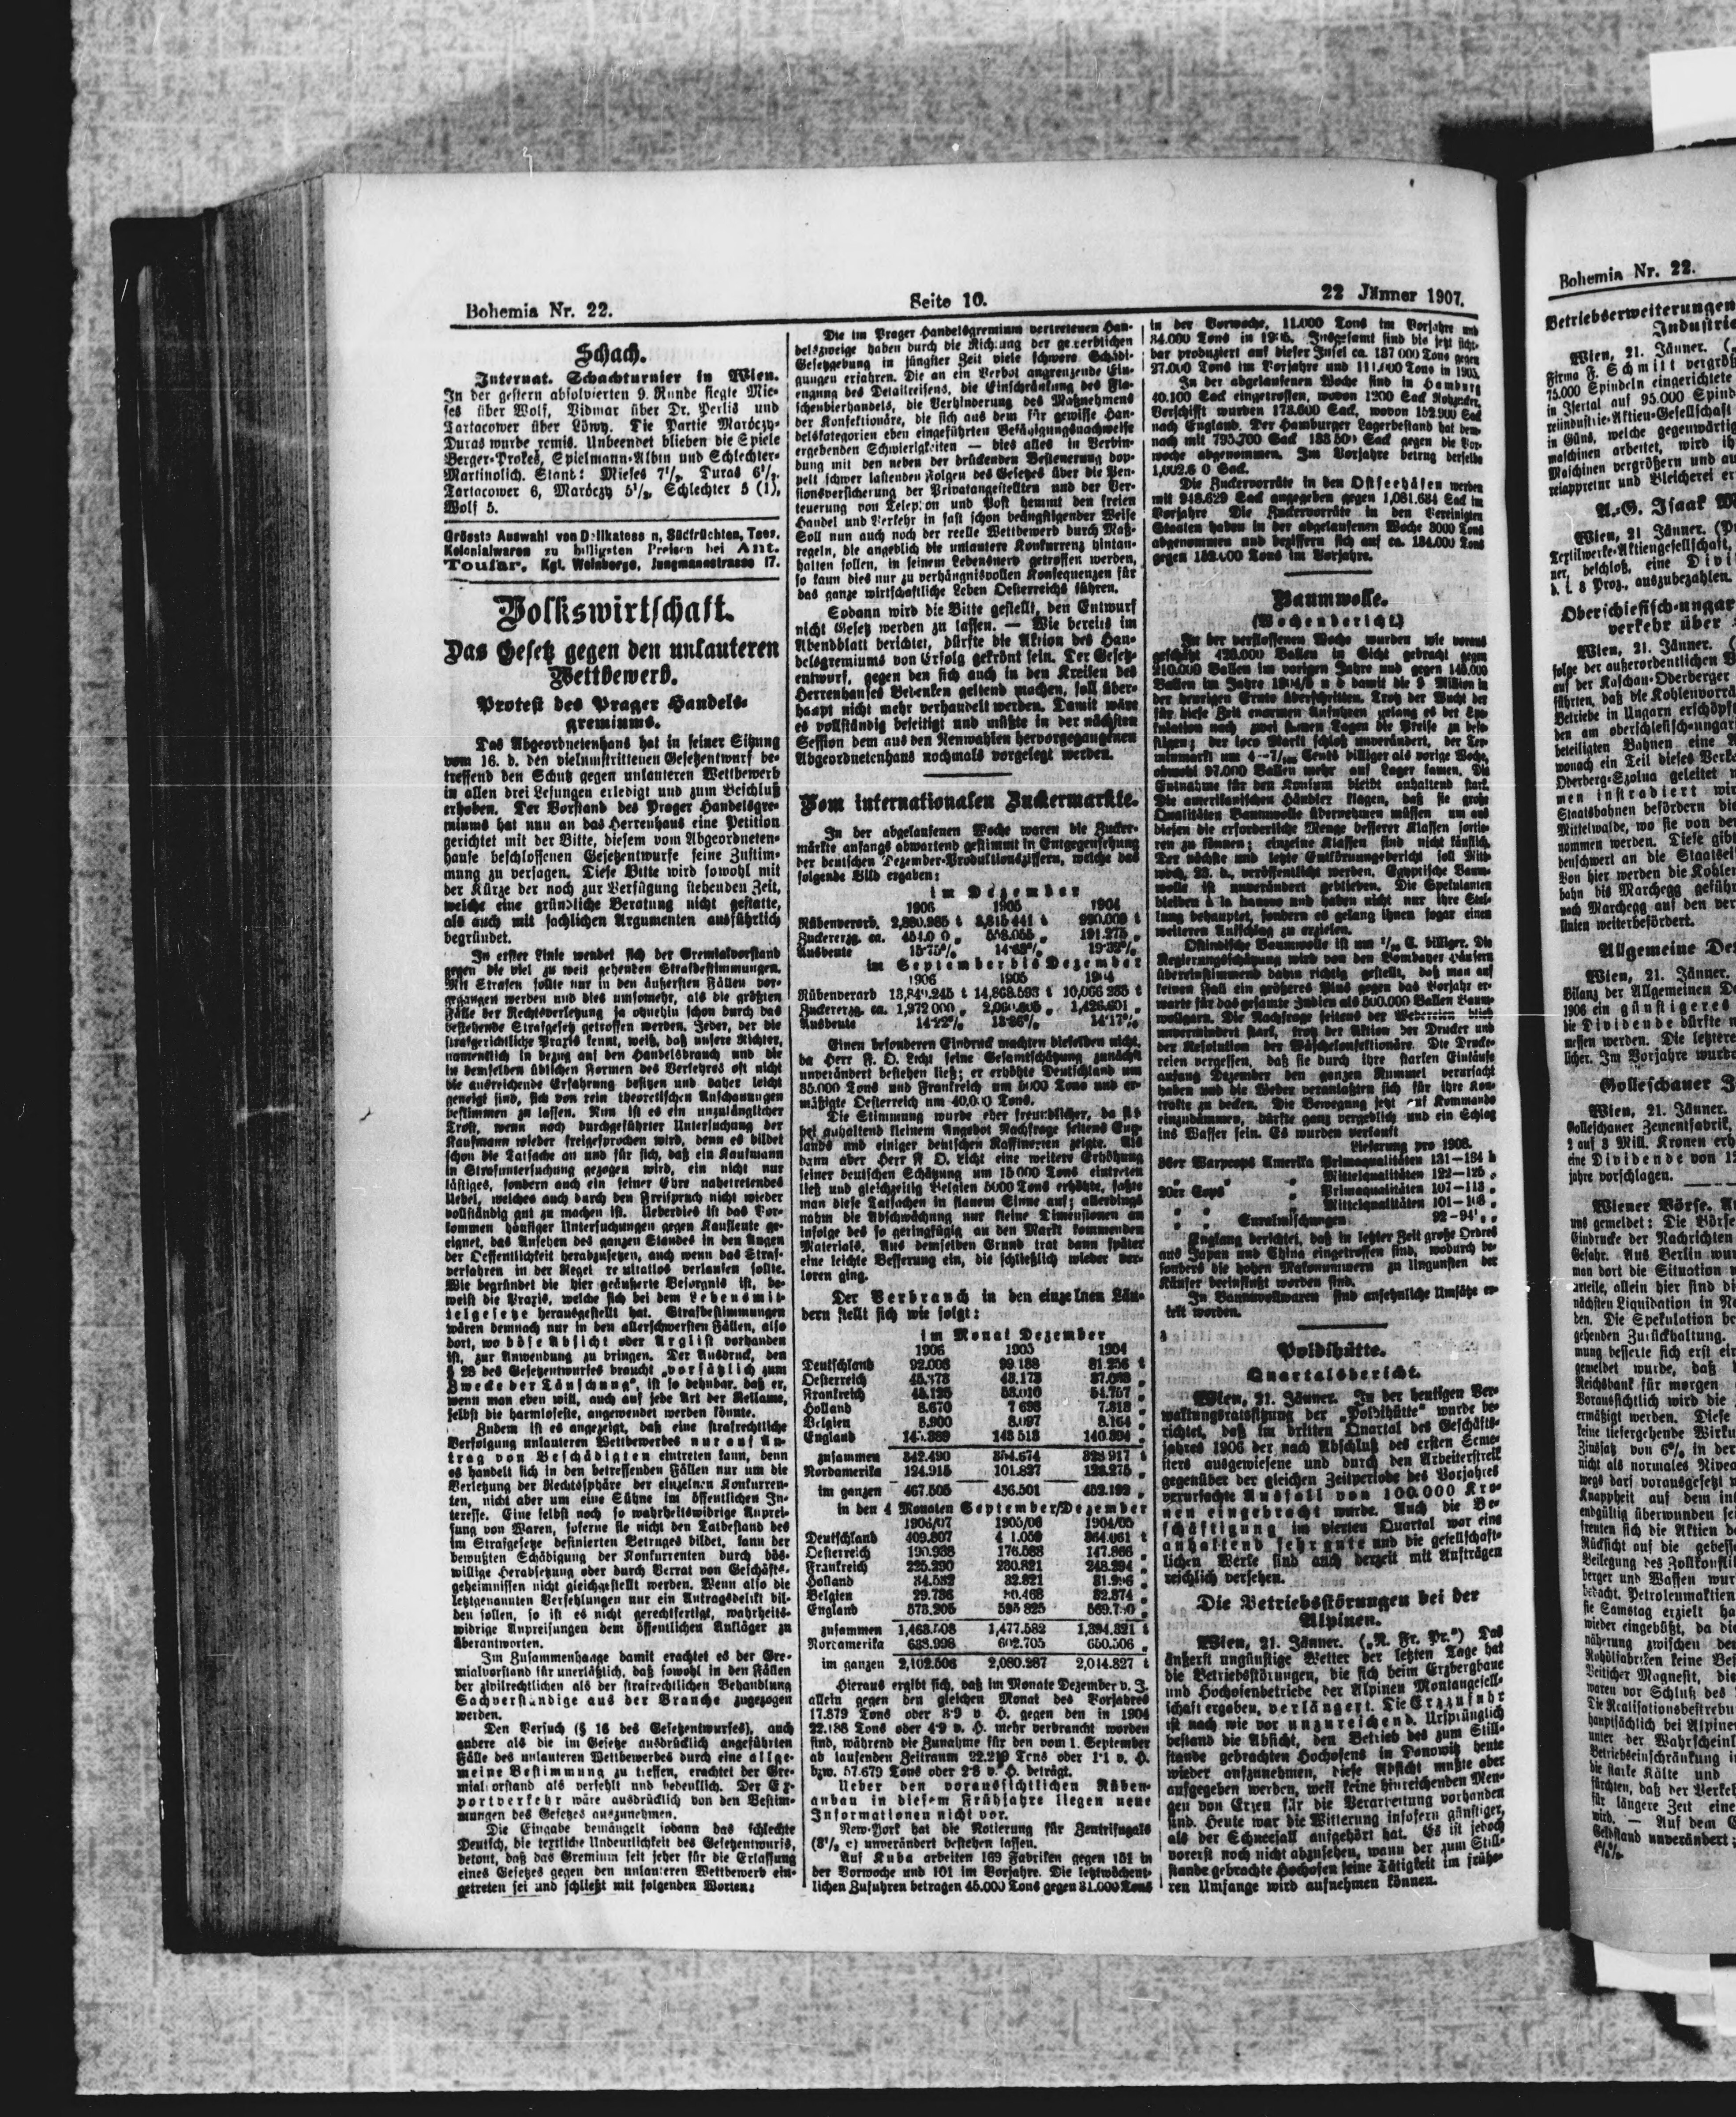 Bohemia Nr. 22.
Seite 10.
22 Jänner 1907.
Schach.
Internat. Schachturnier in Wien.
In der gestern absolvierten 9. Runde siegte Mie-
ses über Wolf, Vidmar über Dr. Perlis und
Tartacower über Löwy. Die Partie Maróczy-
Duras wurde remis. Unbeendet blieben die Spiele
Berger-Prokeš, Spielmann-Albin und Schlechter-
Martinolich. Stant: Mieses 7½, Duras 6½,
Tartacower 6, Maróczy 5½, Schlechter 5 (1),
Wolf 5.
Grösste Auswahl von Südfrüchten, Tees,
Kolonialwaren zu billigsten Preisen bei Ant.
Toufar, Kgl. Weinberge, Jungmannstrasse 17.
Volkswirtschaft.
Das Gesetz gegen den unlauteren
Wettbewerb.
Protest des Prager Handels-
gremiums.
Das Abgeordnetenhaus hat in seiner Sitzung
vom 16. d. den vielumstrittenen Gesetzentwurf be-
treffend den Schutz gegen unlauteren Wettbewerb
in allen drei Lesungen erledigt und zum Beschluß
erhoben. Der Vorstand des Prager Handelsgre-
miums hat nun an das Herrenhaus eine Petition
gerichtet mit der Bitte, diesem vom Abgeordneten-
hause beschlossenen Gesetzentwurfe seine Zustim-
mung zu versagen. Diese Bitte wird sowohl mit
der Kürze der noch zur Verfügung stehenden Zeit,
welche eine gründliche Beratung nicht gestatte,
als auch mit sachlichen Argumenten ausführlich
begründet.
In erster Linie wendet sich der Gremialvorstand
gegen die viel zu weit gehenden Strafbestimmungen.
Mit Strafen sollte nur in den äußersten Fällen vor-
gegangen werden und dies umsomehr, als die größten
Fälle der Rechtsverletzung ja ohnehin schon durch das
bestehende Strafgesetz getroffen werden. Jeder, der die
strafgerichtliche Praxis kennt, weiß, daß unsere Richter,
namentlich in bezug auf den Handelsbrauch und die
in demselben üblichen Formen des Verkehres oft nicht
die ausreichende Erfahrung besitzen und daher leicht
geneigt sind, sich von rein theoretischen Anschauungen
bestimmen zu lassen. Nun ist es ein unzulänglicher
Trost, wenn nach durchgeführter Untersuchung der
Kaufmann wieder freigesprochen wird, denn es bildet
schon die Tatsache an und für sich, daß ein Kaufmann
in Strafuntersuchung gezogen wird, ein nicht nur
lästiges, sondern auch ein seiner Ehre nahetretendes
Uebel, welches auch durch den Freispruch nicht wieder
vollständig gut zu machen ist. Ueberdies ist das Vor-
kommen häufiger Untersuchungen gegen Kaufleute ge-
eignet, das Ansehen des ganzen Standes in den Augen
der Oeffentlichkeit herabzusetzen, auch wenn das Straf-
verfahren in der Regel resultatlos verlaufen sollte.
Wie begründet die hier geäußerte Besorgnis ist, be-
weist die Praxis, welche sich bei dem Lebensmit-
telgesetze herausgestellt hat. Strafbestimmungen
wären demnach nur in den allerschwersten Fällen, also
dort, wo böse Absicht oder Arglist vorhanden
ist, zur Anwendung zu bringen. Der Ausdruck, den
§ 28 des Gesetzentwurfes braucht „vorsätzlich zum
Zwecke der Täuschung“, ist so dehnbar, daß er,
wenn man eben will, auch auf jede Art der Reklame,
selbst die harmloseste, angewendet werden könnte.
Zudem ist es angezeigt, daß eine strafrechtliche
Verfolgung unlauteren Wettbewerbes nur auf An-
trag von Beschädigten eintreten kann, denn
es handelt sich in den betreffenden Fällen nur um die
Verletzung der Rechtssphäre der einzelnen Konkurren-
ten, nicht aber um eine Sühne im öffentlichen In-
teresse. Eine selbst noch so wahrheitswidrige Anprei-
sung von Waren, soferne sie nicht den Tatbestand des
im Strafgesetze definierten Betruges bildet, kann der
bewußten Schädigung der Konkurrenten durch bös-
willige Herabsetzung oder durch Verrat von Geschäfts-
geheimnissen nicht gleichgestellt werden. Wenn also die
letztgenannten Verfehlungen nur ein Antragsdelikt bil-
den sollen, so ist es nicht gerechtfertigt, wahrheits-
widrige Anpreisungen dem öffentlichen Ankläger zu
überantworten.
Im Zusammenhange damit erachtet es der Gre-
mialvorstand für unerläßlich, daß sowohl in den Fällen
der zivilrechtlichen als der strafrechtlichen Behandlung
Sachverständige aus der Branche zugezogen
werden.
Den Versuch (§ 16 des Gesetzentwurfes), auch
andere als die im Gesetze ausdrücklich angeführten
Fälle des unlauteren Wettbewerbes durch eine allge-
meine Bestimmung zu treffen, erachtet der Gre-
mialvorstand als verfehlt und bedenklich. Der Ex-
portverkehr wäre ausdrücklich von den Bestim-
mungen des Gesetzes auszunehmen.
Die Eingabe bemängelt sodann das schlechte
Deutsch, die textliche Undeutlichkeit des Gesetzentwurfs,
betont, daß das Gremium seit jeher für die Erlassung
eines Gesetzes gegen den unlauteren Wettbewerb ein-
getreten sei und schließt mit folgenden Worten:
Die im Prager Handelsgremium vertretenen Han-
delszweige haben durch die Richtung der gewerblichen
Gesetzgebung in jüngster Zeit viele schwere Schädi-
gungen erfahren. Die an ein Verbot angrenzende Ein-
engung des Detailreisens, die Einschränkung des Fla-
schenbierhandels, die Verhinderung des Maßnehmens
der Konfektionäre, die sich aus dem für gewisse Han-
delskategorien eben eingeführten Befähigungsnachweise
ergebenden Schwierigkeiten — dies alles in Verbin-
dung mit den neben der drückenden Besteuerung dop-
pelt schwer lastenden Folgen des Gesetzes über die Pen-
sionsversicherung der Privatangestellten und der Ver-
teuerung von Telephon und Post hemmt den freien
Handel und Verkehr in fast schon beängstigender Weise
Soll nun auch noch der reelle Wettbewerb durch Maß-
regeln, die angeblich die unlautere Konkurrenz hintan-
halten sollen, in seinem Lebensnerv getroffen werden,
so kann dies nur zu verhängnisvollen Konsequenzen für
das ganze wirtschaftliche Leben Oesterreichs führen.
Sodann wird die Bitte gestellt, den Entwurf
nicht Gesetz werden zu lassen. — Wie bereits im
Abendblatt berichtet, dürfte die Aktion des Han-
delsgremiums von Erfolg gekrönt sein. Der Gesetz-
entwurf, gegen den sich auch in den Kreisen des
Herrenhauses Bedenken geltend machen, soll über-
haupt nicht mehr verhandelt werden. Damit wäre
es vollständig beseitigt und müßte in der nächsten
Session dem aus den Neuwahlen hervorgegangenen
Abgeordnetenhaus nochmals vorgelegt werden.
Vom internationalen Zuckermarkte.
In der abgelaufenen Woche waren die Zucker-
märkte anfangs abwartend gestimmt in Entgegensehung
der deutschen Dezember-Produktionsziffern, welche das
folgende Bild ergaben:
im Dezember
1906 1905 1904
Rübenverarb. 2,880.985 t 3,815 441 t 990.009 t
Zuckererzg. ca. 558.055 „ 191.275 „
Ausbeute 15·75% 14·63% 19·32%
im September bis Dezember
1906 1905
Rübenverarb 14,868.593 t 10,066 285 t
Zuckererzg. ca. 1,972 000 „ 1,426.601 „
Ausbeute 14·22% 13·86% 14·17%
Einen besonderen Eindruck machten dieselben nicht,
da Herr F. O. Licht seine Gesamtschätzung zunächst
unverändert bestehen ließ; er erhöhte Deutschland um
35.000 Tons und Frankreich um 5000 Tons und er-
mäßigte Oesterreich um 40,000 Tons.
Die Stimmung wurde eher freundlicher, da sich
bei anhaltend kleinem Angebot Nachfrage seitens Eng-
lands und einiger deutschen Raffinerien zeigte. Als
dann aber Herr F O. Licht eine weitere Erhöhung
seiner deutschen Schätzung um 15 000 Tons eintreten
ließ und gleichzeitig Belgien 5000 Tons erhöhte, faßte
man diese Tatsachen in flauem Sinne auf; allerdings
nahm die Abschwächung nur kleine Dimensionen an
infolge des so geringfügig an den Markt kommenden
Materials. Aus demselben Grund trat dann später
eine leichte Besserung ein, die schließlich wieder ver-
loren ging.
Der Verbrauch in den einzelnen Län-
dern stellt sich wie folgt:
im Monat Dezember
1906 1905 1904
Deutschland 92.008 99.188 81.256 t
Oesterreich 43.173
Frankreich 48.125 53.010 54.757 „
Holland 8.670 7 698 7.818 „
Belgien 5.900 8.097 8.164 „
England 143 513 140.894 „
zusammen 342.490 354.674 323 917 t
Nordamerika 124.915 101.827 128.275 „
im ganzen 467.505 456.501 452.192 „
in den 4 Monaten September/Dezember
1906/07 1905/06 1904/05
Deutschland 409.807 364.061 t
Oesterreich 190.938 176.588 147.866 „
Frankreich 225.290 230.821 248.294 „
Holland 34.532 32.821
Belgien 29.736 32.874 „
England 573.205 595 825
zusammen 1,468.508 1,477.582 1,394.321 t
Nordamerika 633.998 602.705 650.506 „
im ganzen 2,102.506 2,080.287 2,044.827 t
Hieraus ergibt sich, daß im Monate Dezember v. J.
allein gegen den gleichen Monat des Vorjahres
17.879 Tons oder 3·9 v. H. gegen den in 1904
22.188 Tons oder 4·9 v. H. mehr verbraucht worden
sind, während die Zunahme für den vom 1. September
ab laufenden Zeitraum 22.219 Tons oder 1·1 v. H.
bzw. 57.679 Tons oder 2·8 v. H. beträgt.
Ueber den voraussichtlichen Rüben-
anbau in diesem Frühjahre liegen neue
Informationen nicht vor.
New-York hat die Notierung für Zentrifugals
unverändert bestehen lassen.
Auf Kuba arbeiten 169 Fabriken gegen 151 in
der Vorwoche und 101 im Vorjahre. Die letztwöchent-
lichen Zufuhren betragen 45.000 Tons gegen 31.000 Tons
in der Vorwoche, 11.000 Tons im Vorjahre und
34.000 Tons in 1905. Insgesamt sind bis jetzt sicht-
bar produziert auf dieser Insel ca. 137 000 Tons gegen
97.000 Tons im Vorjahre und 111.000 Tons in 1905.
In der abgelaufenen Woche sind in Hamburg
40.100 Sack eingetroffen, wovon 1200 Sack Rohzucker.
Verschifft wurden 173.600 Sack, wovon 152.900 Sack
nach England. Der Hamburger Lagerbestand hat dem-
nach mit 795.700 Sack 133 500 Sack gegen die Vor-
woche abgenommen. Im Vorjahre betrug derselbe
Sack.
Die Zuckervorräte in den Ostseehäfen werden
mit 948.629 Sack angegeben gegen 1,081.684 Sack im
Vorjahre Die Zuckervorräte in den Vereinigten
Staaten haben in der abgelaufenen Woche 3000 Tons
abgenommen und beziffern sich auf ca. 184.000 Tons
gegen 152.000 Tons im Vorjahre.
Baumwolle.
(Wochenbericht)
In der verflossenen Woche wurden wie voraus
geschätzt 420.000 Ballen in Sicht gebracht gegen
210.000 Ballen im vorigen Jahre und gegen 145.000
Ballen im Jahre 1904/5 und damit die 9 Million in
der heurigen Ernte überschritten. Trotz der Wucht der
für diese Zeit enormen Anfuhren gelang es der Spe-
kulation nach zwei Tagen die Preise zu befe-
stigen; der loco Markt schloß unverändert, der Ter-
minmarkt um Cents billiger als vorige Woche,
obwohl 97.000 Ballen mehr auf Lager kamen. Die
Entnahme für den Konsum bleibt anhaltend stark.
Die amerikanischen Händler klagen, daß sie große
Qualitäten Baumwolle übernehmen müssen um aus
diesen die erforderliche Menge besserer Klassen sortie-
ren zu können; einzelne Klassen sind nicht käuflich.
Der nächste und letzte Entkörnungsbericht soll Mitt-
woch, 23. d., veröffentlicht werden. Egyptische Baum-
wolle ist unverändert geblieben. Die Spekulanten
bleiben à la hausse und haben nicht nur ihre Stel-
lung behauptet, sondern es gelang ihnen sogar einen
weiteren Aufschlag zu erzielen.
Ostindische Baumwolle ist um billiger. Die
Regierungsschätzung wird von den Bombayer Häusern
übereinstimmend dahin richtig gestellt, daß man auf
keinen Fall ein größeres Plus gegen das Vorjahr er-
warte für das gesamte Indien als 500.000 Ballen Baum-
wollgarn. Die Nachfrage seitens der Webereien blieb
unvermindert stark, trotz der Aktion der Drucker und
der Resolution der Wäschekonfektionäre. Die Drucke-
reien vergessen, daß sie durch ihre starken Einkäufe
anfang Dezember den ganzen Rummel verursacht
haben und die Weber veranlaßten sich für ihre Kon-
trakte zu decken. Die Bewegung jetzt auf Kommando
einzudämmen, dürfte ganz vergeblich und ein Schlag
ins Wasser sein. Es wurden verkauft
Lieferung pro 1908.
36er Warpcops Amerika Primaqualitäten 131—134 h
„ „ Mittelqualitäten 122—125 „
20er Cops „ Primaqualitäten 107—113 „
„ „ Mittelqualitäten 101—103 „
„ „ Suratmischungen
England berichtet, daß in letzter Zeit große Ordres
aus Japan und China eingetroffen sind, wodurch be-
sonders die hohen Makonummern zu Ungunsten der
Käufer beeinflußt worden sind.
In Baumwollwaren sind ansehnliche Umsätze er-
zielt worden.
Poldihütte.
Quartalsbericht.
Wien, 21. Jänner. In der heutigen Ver-
waltungsratssitzung der „Poldihütte“ wurde be-
richtet, daß im dritten Quartal des Geschäfts-
jahres 1906 der nach Abschluß des ersten Seme-
sters ausgewiesene und durch den Arbeiterstreik
gegenüber der gleichen Zeitperiode des Vorjahres
verursachte Ausfall von 100.000 Kro-
nen eingebracht wurde. Auch die Be-
schäftigung im vierten Quartal war eine
anhaltend sehr gute und die gesellschaft-
lichen Werke sind auch derzeit mit Aufträgen
reichlich versehen.
Die Betriebsstörungen bei der
Alpinen.
Wien, 21. Jänner. („N. Fr. Pr.“) Das
äußerst ungünstige Wetter der letzten Tage hat
die Betriebsstörungen, die sich beim Erzbergbaue
und Hochofenbetriebe der Alpinen Montangesell-
schaft ergaben, verlängert. Die Erzzufuhr
ist nach wie vor unzureichend. Ursprünglich
bestand die Absicht, den Betrieb des zum Still-
stande gebrachten Hochofens in Donowitz heute
wieder aufzunehmen, diese Absicht mußte aber
aufgegeben werden, weil keine hinreichenden Men-
gen von Erzen für die Verarbeitung vorhanden
sind. Heute war die Witterung insofern günstiger,
als der Schneefall aufgehört hat. Es ist jedoch
vorerst noch nicht abzusehen, wann der zum Still-
stande gebrachte Hochofen seine Tätigkeit im frühe-
ren Umfange wird aufnehmen können.
Bohemia Nr. 22.
Betriebserweiterungen
Wien, 21. Jänner.
Firma F. Schmitt vergröß
75.000 Spindeln eingerichtete
in Isertal auf 95.000 Spind
reiindustrie-Aktien-Gesellschaft
in Güns, welche gegenwärtig
maschinen arbeitet, wird ih
Maschinen vergrößern und au
reiappretur und Bleicherei er
A.-G. Isaak
Wien, 21 Jänner.
Textilwerke-Aktiengesellschaft,
ner, beschloß, eine Divi
d. i. 8 Proz., auszubezahlen.
Oberschlesisch-ungar
verkehr über
Wien, 21. Jänner.
folge der außerordentlichen
auf der Kaschau-Oderberger
führten, daß die Kohlenvorrä
Betriebe in Ungarn erschöpf
den am oberschlesisch-ungar
beteiligten Bahnen eine
wonach ein Teil dieses Verke
Oderberg-Szolna geleitet
men instradiert wir
Staatsbahnen befördern die
Mittelwalde, wo sie von den
nommen werden. Diese gibt
denschwert an die Staatsei
Von hier werden die Kohlen
bahn bis Marchegg geführ
nach Marchegg auf den ver
linien weiterbefördert.
Allgemeine De
Wien, 21. Jänner.
Bilanz der Allgemeinen De
1906 ein günstigeres
die Dividende dürfte
messen werden. Die letztere
licher. Im Vorjahre wurde
Golleschauer
Wien, 21. Jänner.
Golleschauer Zementfabrik,
2 auf 3 Mill. Kronen erh
eine Dividende von 1
jahre vorschlagen.
Wiener Börse.
uns gemeldet: Die Börse
Eindrucke der Nachrichten
Gefahr. Aus Berlin wur
man dort die Situation
urteile, allein hier sind die
nächsten Liquidation in
den. Die Spekulation be
gehenden Zurückhaltung.
mung besserte sich erst ein
gemeldet wurde, daß
Reichsbank für morgen
Voraussichtlich wird die
ermäßigt werden. Diese
keine tiefergehende Wirku
Zinssatz von 6% in der
nicht als normales Nivea
wegs darf vorausgesetzt
Knappheit auf dem int
endgültig überwunden sei
freuten sich die Aktien
Rücksicht auf die gebesse
Beilegung des Zollkonfli
berger und Waffen wur
bedacht. Petroleumaktien
sie Samstag erzielt ha
wieder eingebüßt, da die
näherung zwischen den
Rohölfabriken keine
Veitscher Magnesit, die
waren vor Schluß des
Die Realisationsbestrebu
hauptsächlich bei Alpine
unter der Wahrscheinl
Betriebseinschränkung
die starke Kälte und
fürchten, daß der Verkeh
für längere Zeit eine
wird. — Auf dem
Geldstand unverändert